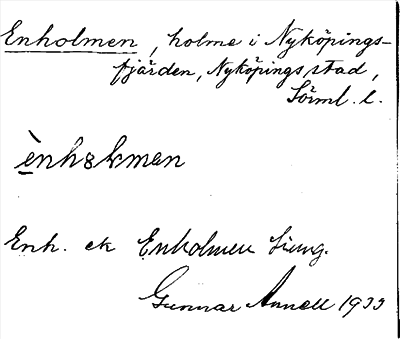 Enholmen, holme i Nyköpings-
fjärden, Nyköpings stad,
Sörml. l.
ènhɷlmen
Enh. ek Enholmen
Gunnar Annell 1933